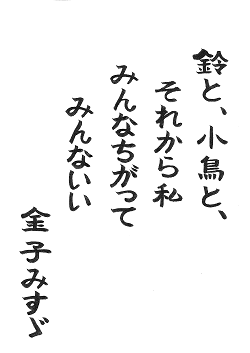 鈴と、小鳥と、
それから私
みんなちがって
みんないい
金子みすゞ